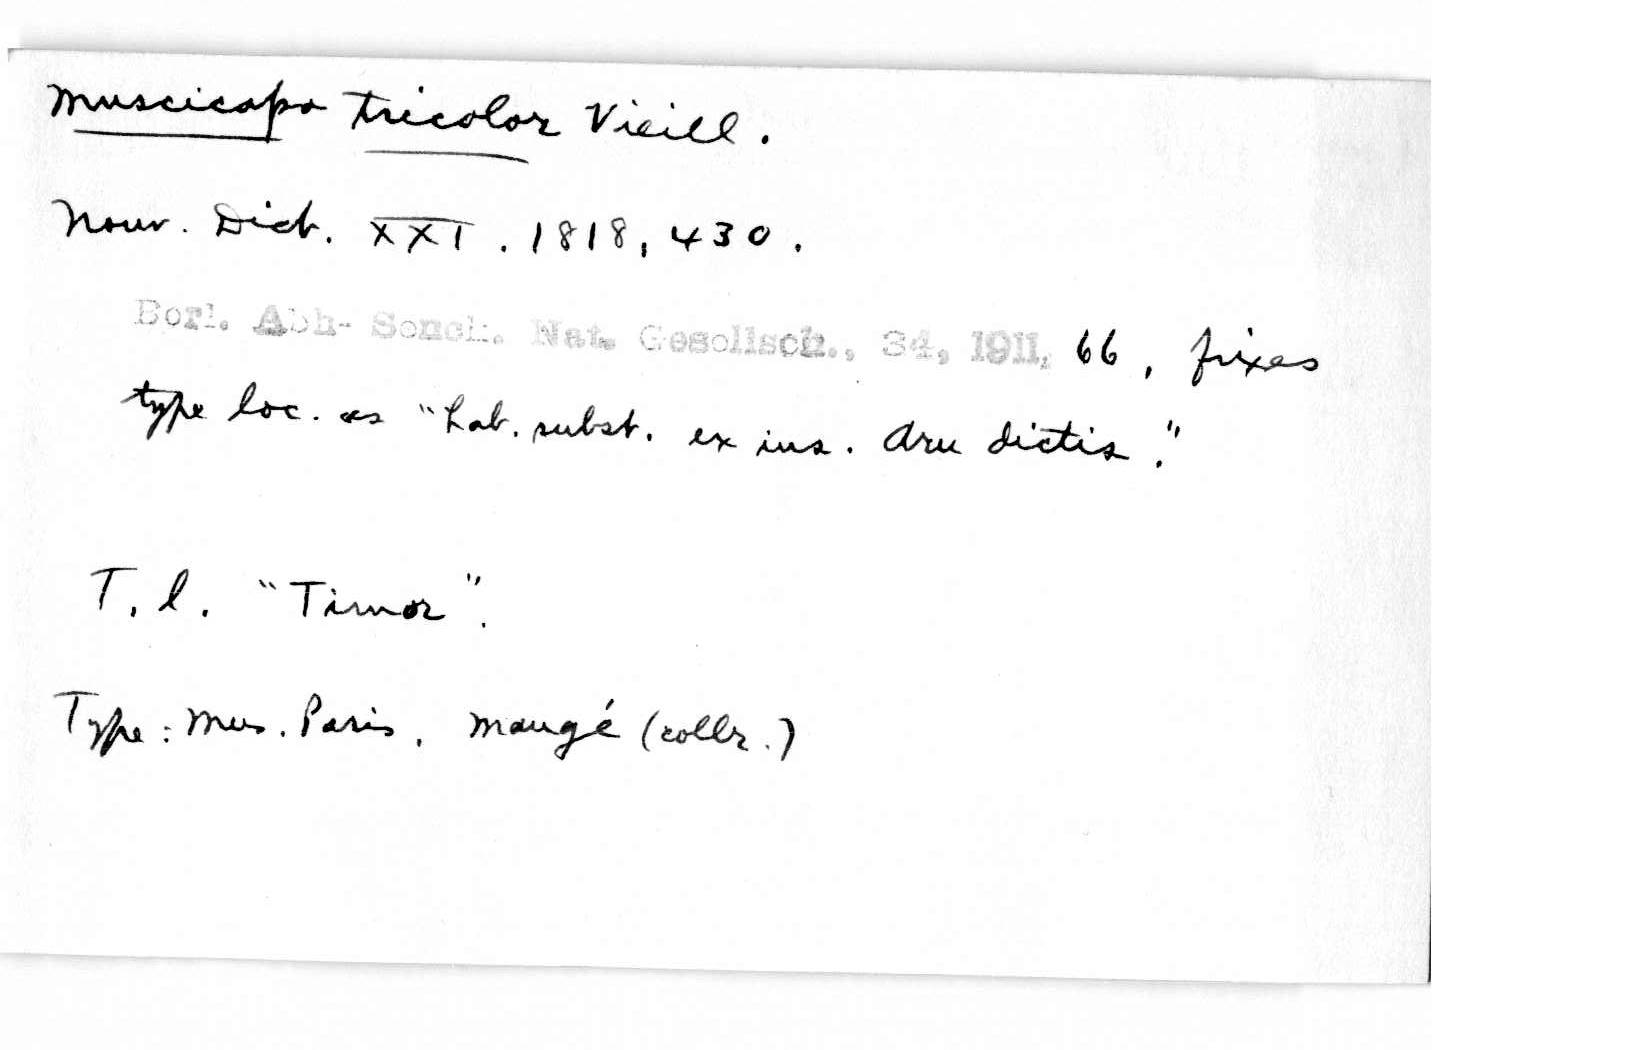 Muscicapa tricolor Vieill.
Nouv. Dict. XXI. 1818, 430.
Berl. Abh. Senck. Nat. Gesellsch., 34, 1911, 66, fixes
type loc. as "hab. subst. ex ins. Aru dictis."
T. l. "Timor".
Type: Mus. Paris, Maugé (collr.)